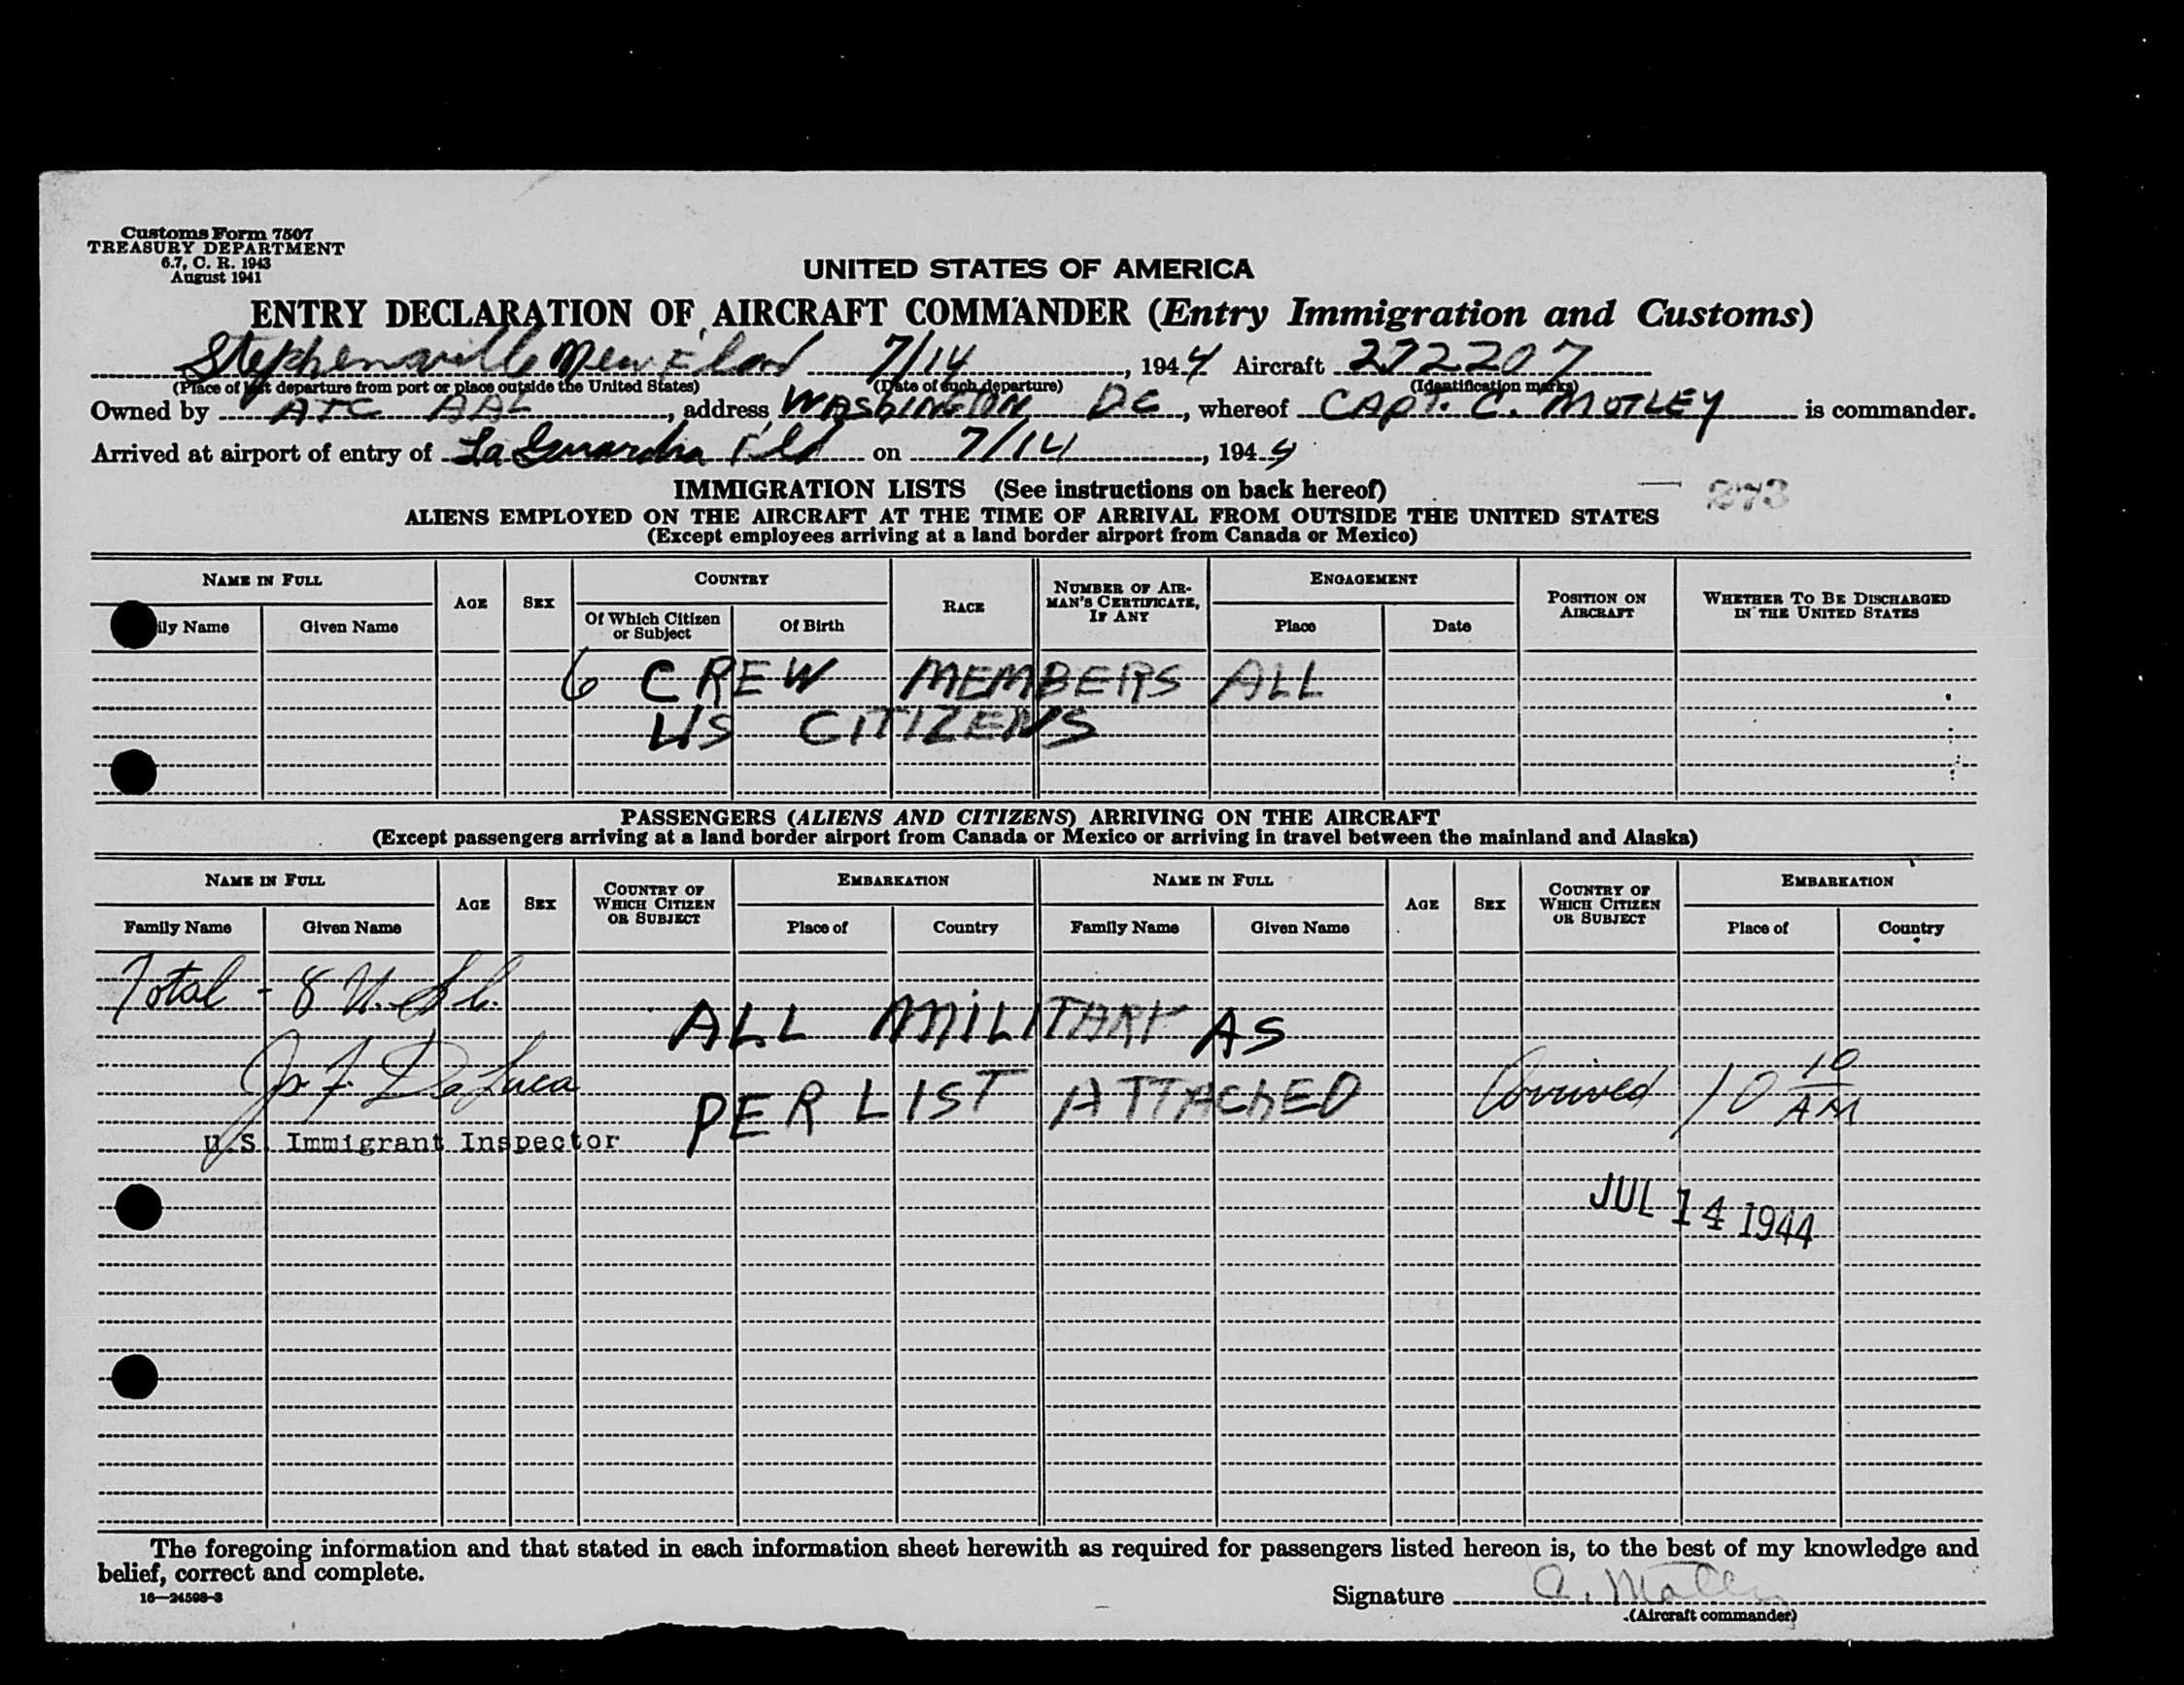 Customs Form 7507
TREASURY DEPARTMENT
6.7, C. R. 1943
August 1941
UNITED STATES OF AMERICA
ENTRY DECLARATION OF AIRCRAFT COMMANDER (Entry Immigration and Customs)
Stephenville 7/14, 1944 Aircraft 272207
(Place of last departure from port or place outside the United States) (Date of such departure) (Identification marks)
Owned by ATC AAL, address WAShINGTON DC, whereof CAPT. C. MOTLEY is commander.
Arrived at airport of entry of La Guardia Fld on 7/14, 1944
IMMIGRATION LISTS (See instructions on back hereof) 273
ALIENS EMPLOYED ON THE AIRCRAFT AT THE TIME OF ARRIVAL FROM OUTSIDE THE UNITED STATES
(Except employees arriving at a land border airport from Canada or Mexico)
NAME IN FULL AGE SEX COUNTRY RACE NUMBER OF AIRMAN'S CERTIFICATE, IF ANY ENGAGEMENT POSITION ON AIRCRAFT WHETHER TO BE DISCHARGED IN THE UNITED STATES
ily Name Given Name Of Which Citizen or Subject Of Birth Place Date
6 CREW MEMBERS ALL
US CITIZENS
PASSENGERS (ALIENS AND CITIZENS) ARRIVING ON THE AIRCRAFT
(Except passengers arriving at a land border airport from Canada or Mexico or arriving in travel between the mainland and Alaska)
NAME IN FULL AGE SEX COUNTRY OF WHICH CITIZEN OR SUBJECT EMBARKATION NAME IN FULL AGE SEX COUNTRY OF WHICH CITIZEN OR SUBJECT EMBARKATION
Family Name Given Name Place of Country Family Name Given Name Place of Country
Total - 8 U.S.C.
ALL MILITARY AS
Jos. F. DeLuca
PER LIST ATTACHED Arrived 10 10 AM
U.S. Immigrant Inspector
JUL 14 1944
The foregoing information and that stated in each information sheet herewith as required for passengers listed hereon is, to the best of my knowledge and
belief, correct and complete.
16—24598-3
Signature C. Motley
(Aircraft commander)